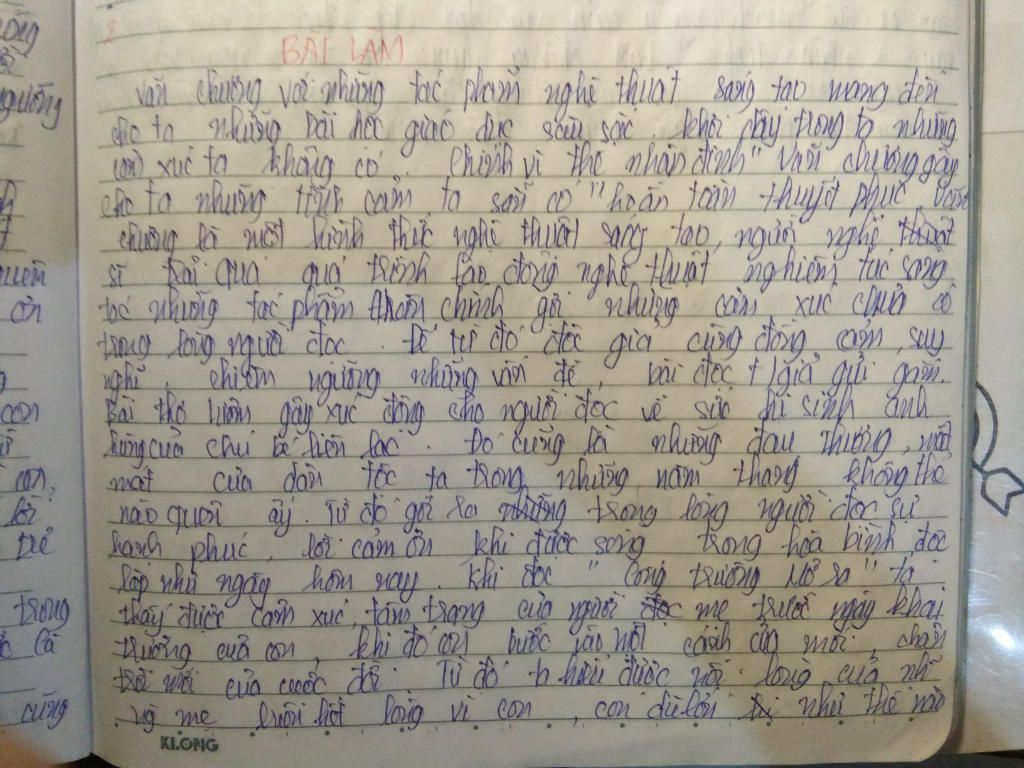 BÀI LÀM
Văn chương với những tác phẩm nghệ thuật sáng tạo mang đến
cho ta những bài học giáo dục sâu sắc. khơi dậy trong ta những
cảm xúc ta không có. Chính vì thế nhận định " Văn chương gây
cho ta những tình cảm ta sẵn có " hoàn toàn thuyết phục. Văn
chương là một hình thức nghệ thuật sáng tạo, người nghệ thuật
sĩ trải qua quá trình lao động nghệ thuật nghiêm túc sáng
tác những tác phẩm hoàn chỉnh gợi những cảm xúc chưa có
trong lòng người đọc. Để từ đó độc giả cùng đồng cảm, suy
nghĩ, chiêm ngưỡng những vấn đề, bài đọc t/giả gửi gắm.
Bài thơ luôn gây xúc động cho người đọc về sức hi sinh anh
hùng của chú bé liên lạc. Đó cũng là những đau thương, mất
mát của dân tộc ta trong những năm tháng không thể
nào quên ấy. Từ đó gợi ra những trong lòng người đọc sự
hạnh phúc, lời cảm ơn khi được sống trong hòa bình độc
lập như ngày hôm nay. khi đọc " Cổng trường mở ra " ta
thấy được cảm xúc, tâm trạng của người đọc mẹ trước ngày khai
trường của con, khi đó con bước vào một cánh cửa mới, chân
trời mới của cuộc đời. Từ đó ta hiểu được nỗi lòng của nhữ
ng mẹ luôn hết lòng vì con, con dù lớn như thế nào
KLONG
ường
gưỡng
ơn
con
con,
lời
trong
cũng